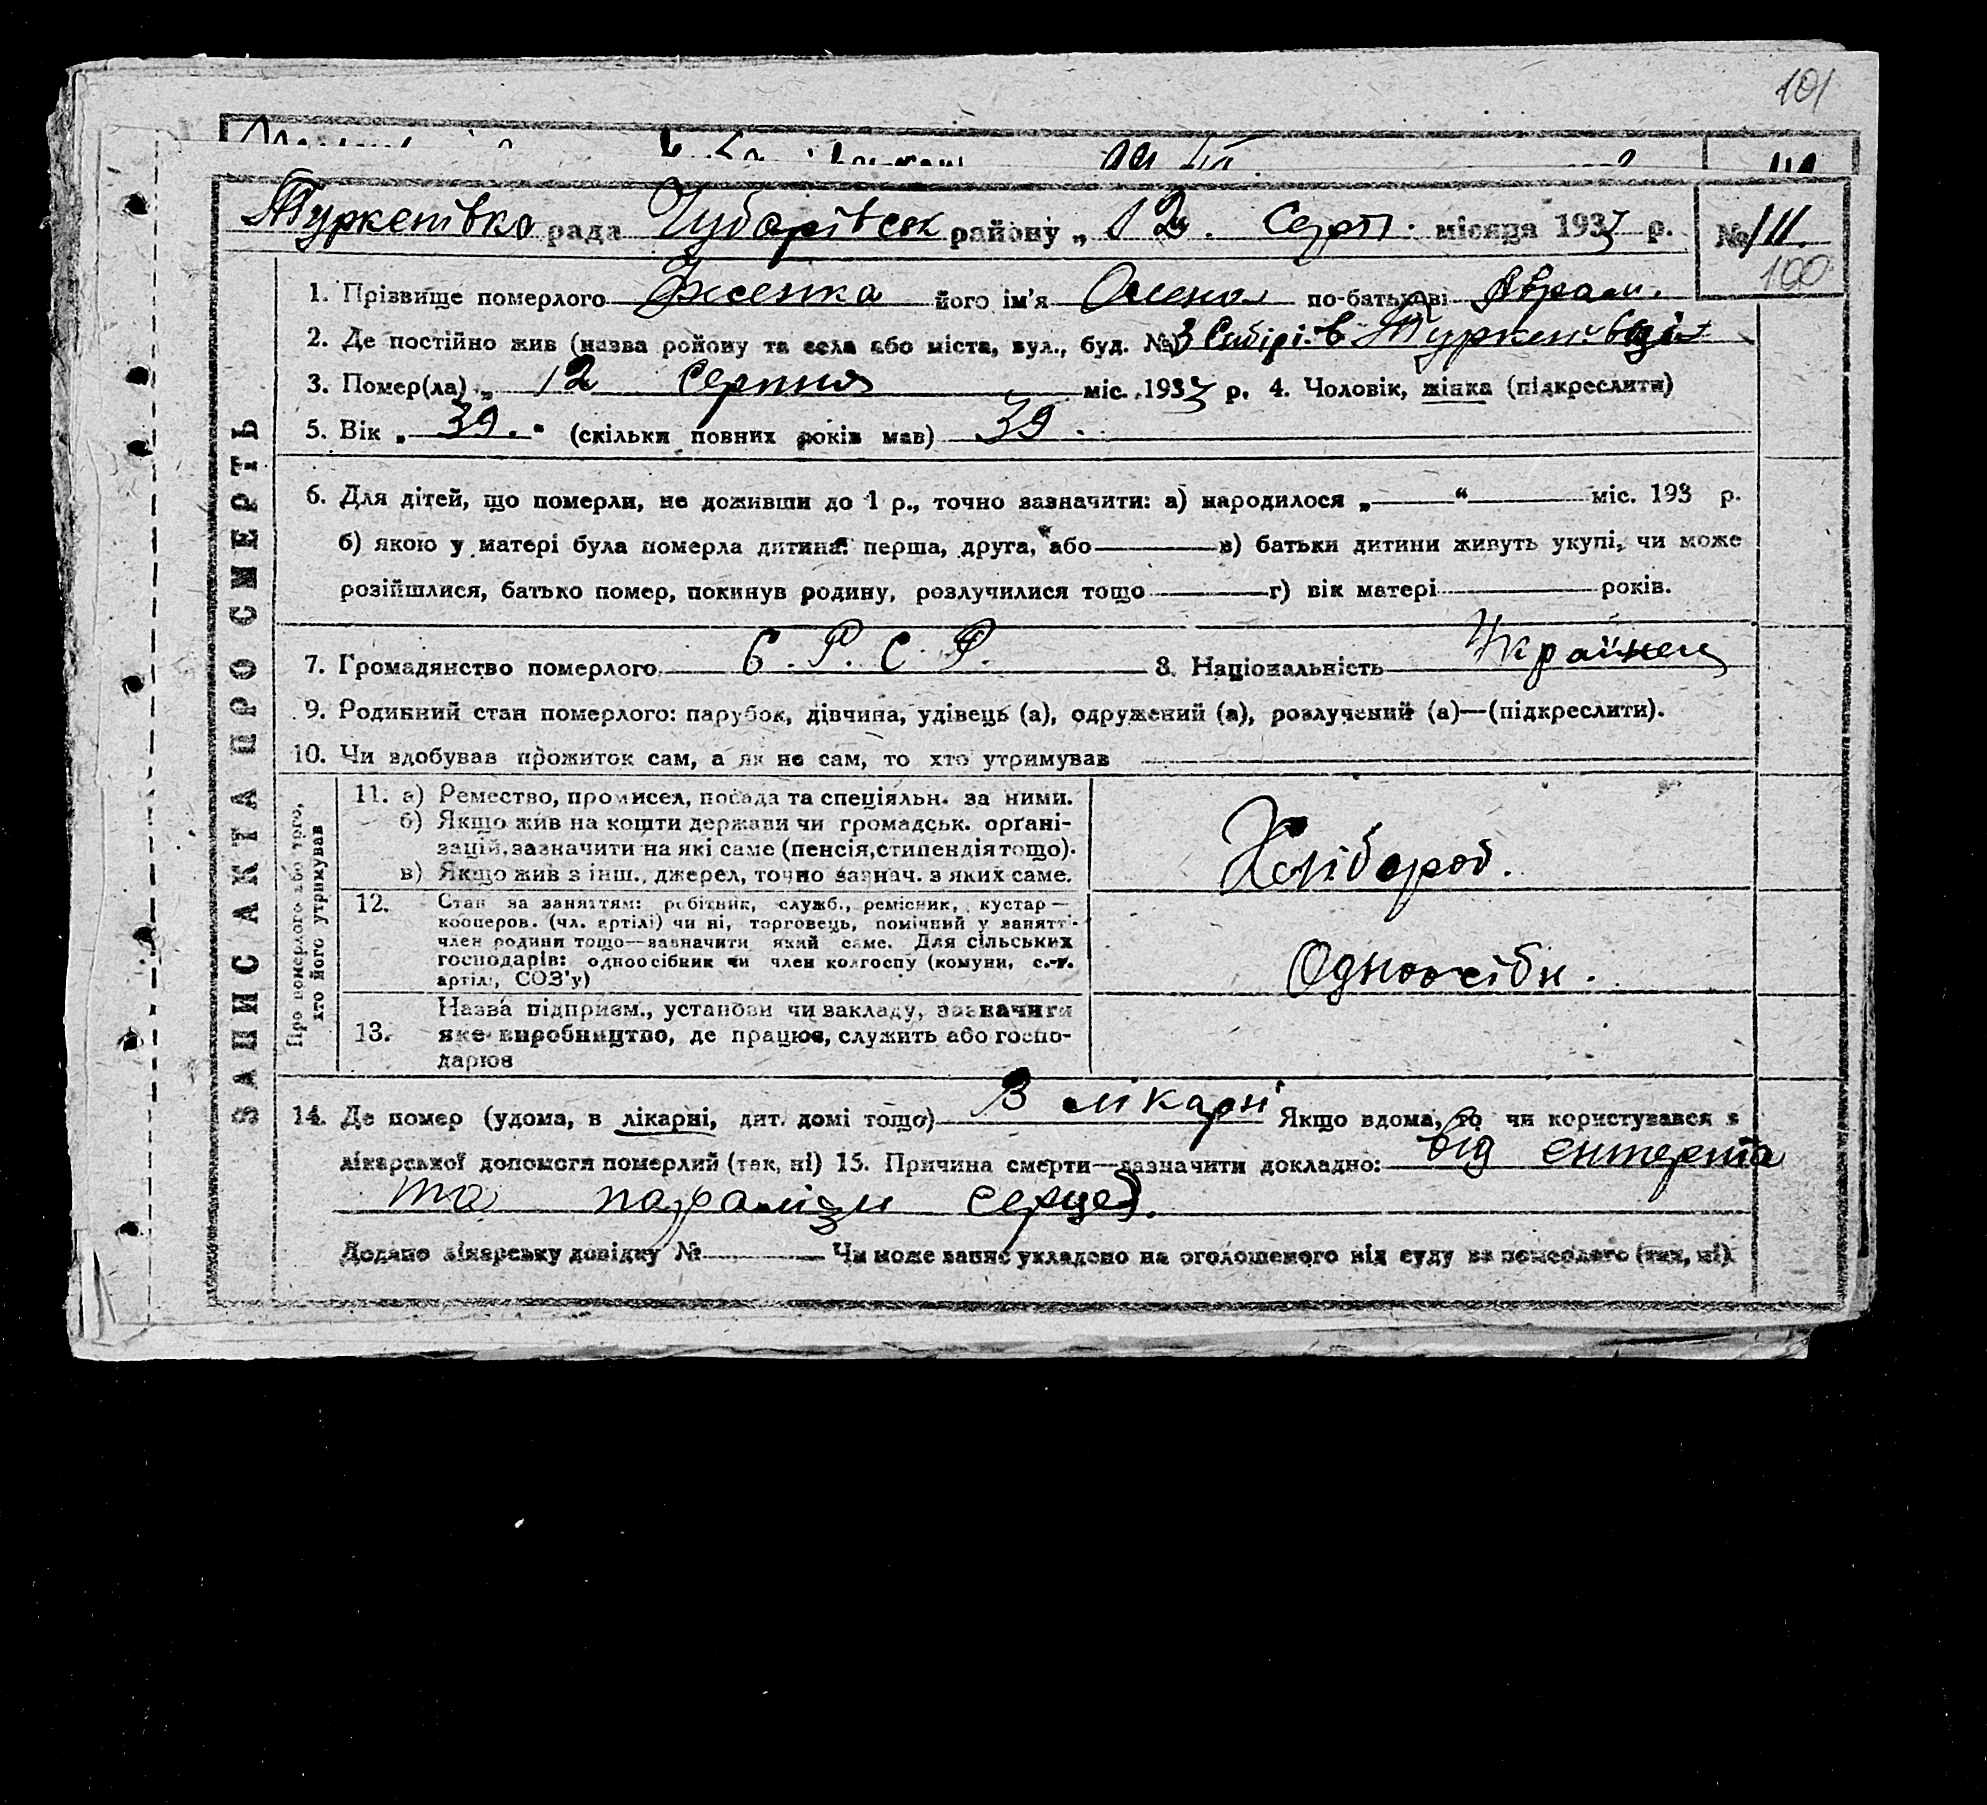 101
Туркенівка рада Чубарівськ району „ 12. Серп. місяця 1933 р. № 111.
100
ЗАПИС АКТА ПРО СМЕРТЬ
1. Прізвище померлого його ім'я Олена по-батькові Аврам.
2. Де постійно жив (назва району та села або міста, вул., буд. № З Сибірі. в Туркенівці
3. Помер(ла) „ 12 Серпня міс. 1933 р. 4. Чоловік, жінка (підкреслити)
5. Вік „ 39. " (скільки повних років мав) 39.
6. Для дітей, що померли, не доживши до 1 р., точно зазначити: а) народилося „ “ міс. 193 р.
б) якою у матері була померла дитина: перша, друга, або в) батьки дитини живуть укупі, чи може
розійшлися, батько помер, покинув родину, розлучилися тощо г) вік матері років.
7. Громадянство померлого С. Р. С. Р. 8. Національність Українец
9. Родинний стан померлого: парубок, дівчина, удівець (а), одружений (а), розлучений (а)—(підкреслити).
10. Чи здобував прожиток сам, а як не сам, то хто утримував
Про померлого або того,
хто його утримував
11. а) Ремество, промисел, посада та спеціяльн. за ними.
б) Якщо жив на кошти держави чи громадськ. органі-
зацій, зазначити на які саме (пенсія, стипендія тощо).
в) Якщо жив з інш. джерел, точно зазнач. з яких саме.
Хлібороб.
12. Стан за заняттям: робітник, служб., ремісник, кустар—
кооперов. (чл. артілі) чи ні, торговець, помічний у занятті
член родини тощо—зазначити який саме. Для сільських
господарів: одноосібник чи член колгоспу (комуни, с.-г.
артілі, СОЗ'у)
Одноосібн.
13. Назва підприєм., установи чи закладу, зазначити
яке виробництво, де працює, служить або госпо-
дарює
14. Де помер (удома, в лікарні, дит. домі тощо) В лікарні Якщо вдома, то чи користувався з
лікарської допомоги померлий (так, ні) 15. Причина смерти—зазначити докладно: від ентерита
та паралізи серця.
Додано лікарську довідку № Чи може запис укладено на оголошеного від суду за померлого (так, ні)